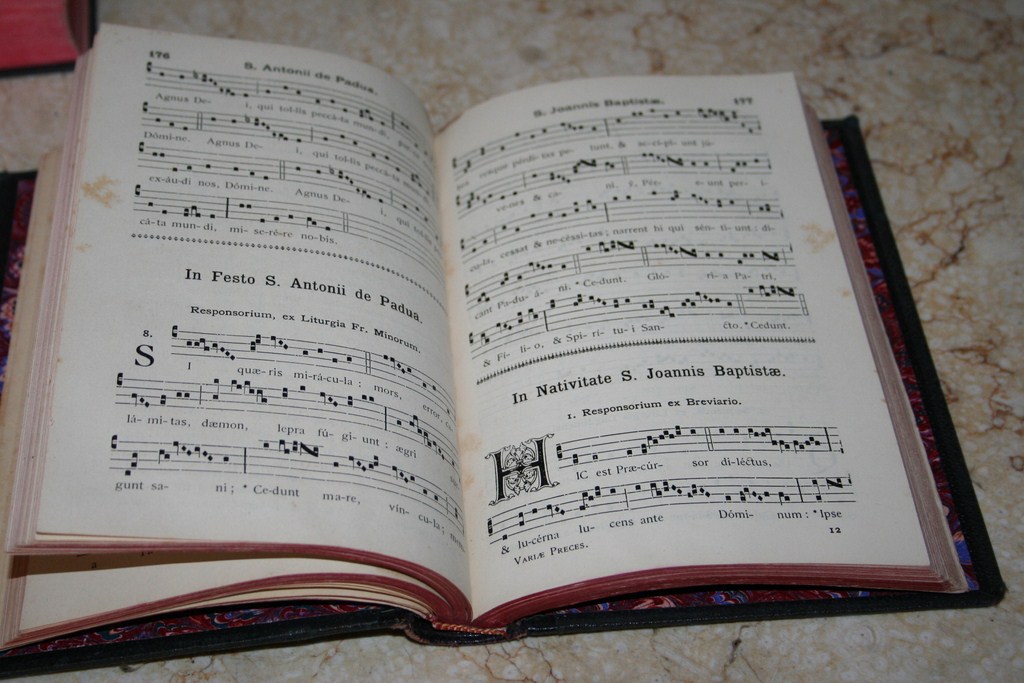 176
S. Antonii de Padua.
Agnus De- i, qui tol-lis peccá-ta mun-di,
Dómi-ne. Agnus De- i, qui tol-lis peccá-ta mun-di,
ex-áu-di nos, Dómi-ne. Agnus De- i, qui tol-lis
cá-ta mun-di, mi-se-ré-re no-bis.
In Festo S. Antonii de Padua.
Responsorium, ex Liturgia Fr. Minorum.
8.
S I quæ-ris mi-rá-cu-la : mors, error,
lá-mi-tas, dæmon, lepra fú-gi-unt : ægri
gunt sa- ni ; * Ce-dunt ma-re, vin-cu-la ;
S. Joannis Baptistæ.
177
resque pérdi-tas pe- tunt, & ac-cí-pi-unt jú-
ve-nes & ca- ni. ℣. Pér- e-unt per-í-
cu-la, cessat & ne-cés-si-tas ; narrent hi qui sén-ti-unt : di-
cant Pa-du- á- ni. * Cedunt. Gló- ri-a Pa-tri,
& Fí-li-o, & Spi-rí-tu-i San- cto. * Cedunt.
In Nativitate S. Joannis Baptistæ.
1. Responsorium ex Breviario.
H IC est Præ-cúr- sor di-léctus,
& lu-cérna lu- cens ante Dómi- num : * Ipse
VARIÆ PRECES.
12